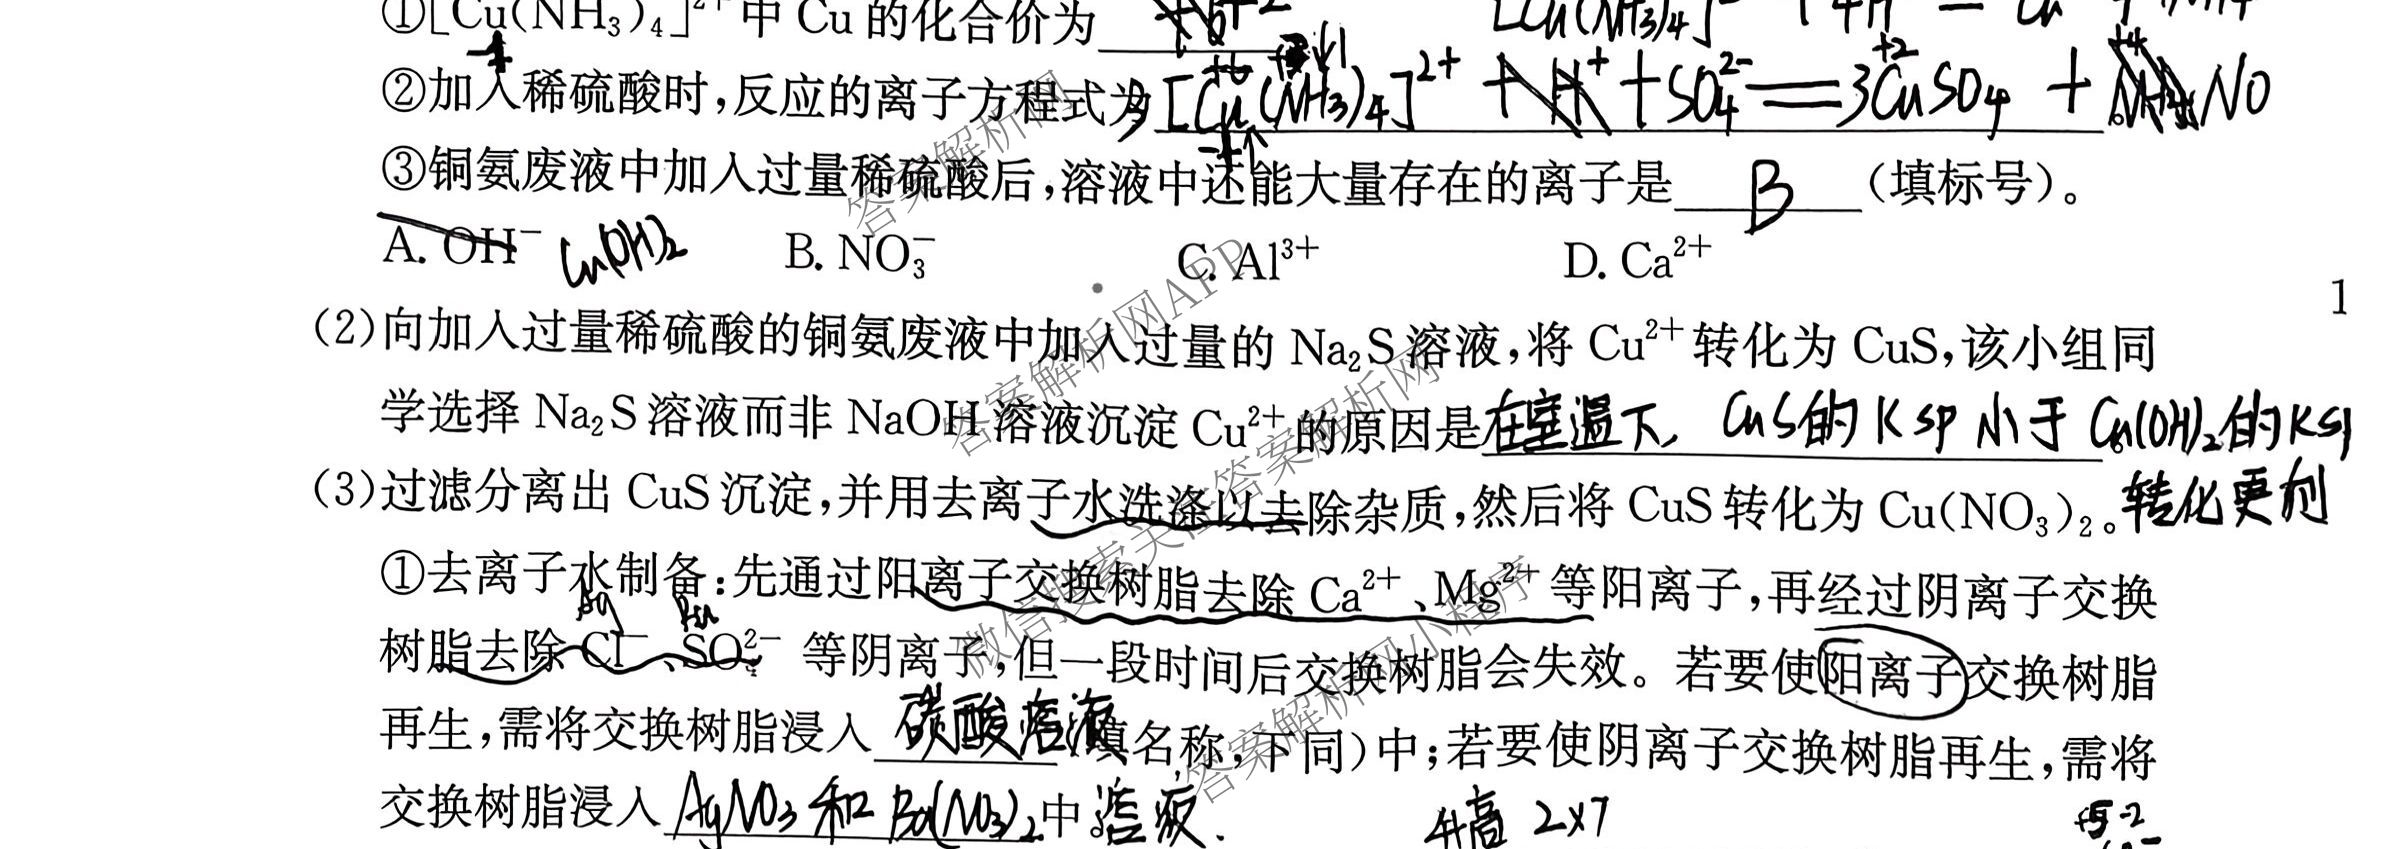 ①[Cu(NH₃)₄]²⁺中 Cu 的化合价为 +2 [Cu(NH₃)₄]²⁺ + 4H⁺ =
②加入稀硫酸时,反应的离子方程式为 3[Cu(NH₃)₄]²⁺ + SO₄²⁻ == 3CuSO₄ + NO
③铜氨废液中加入过量稀硫酸后,溶液中还能大量存在的离子是 B (填标号)。
A. OH⁻ Cu(OH)₂ B. NO₃⁻ C. Al³⁺ D. Ca²⁺
1
(2)向加入过量稀硫酸的铜氨废液中加入过量的 Na₂S 溶液,将 Cu²⁺ 转化为 CuS,该小组同
学选择 Na₂S 溶液而非 NaOH 溶液沉淀 Cu²⁺ 的原因是在室温下, CuS的 Ksp 小于 Cu(OH)₂的Ksp
(3)过滤分离出 CuS 沉淀,并用去离子水洗涤以去除杂质,然后将 CuS 转化为 Cu(NO₃)₂。转化更利
①去离子水制备:先通过阳离子交换树脂去除 Ca²⁺、Mg²⁺ 等阳离子,再经过阴离子交换
Ag Ba
树脂去除 Cl⁻、SO₄²⁻ 等阴离子,但一段时间后交换树脂会失效。若要使阳离子交换树脂
再生,需将交换树脂浸入 碳酸溶液 填名称,下同)中;若要使阴离子交换树脂再生,需将
交换树脂浸入 AgNO₃ 和 Ba(NO₃)₂中。溶液. 升高 2×7 +5 -2
答案解析网
答案解析网APP
微信搜索关注答案解析网
答案解析网小程序